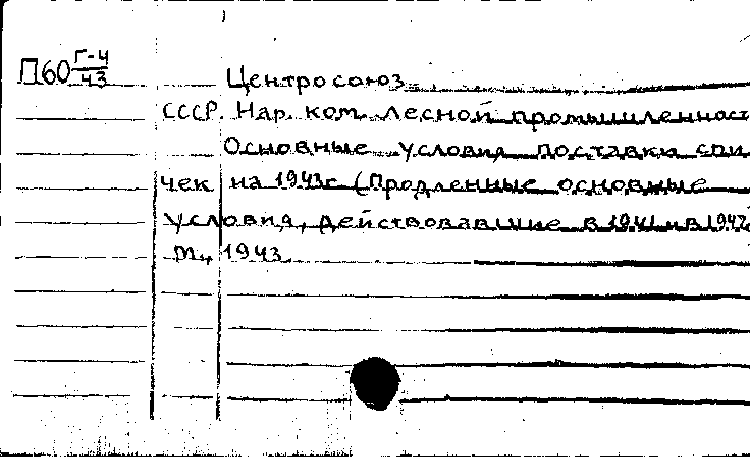 П60 Г-4/43
Центросоюз
СССР. Нар. ком. лесной промышленност
Основные условия поставки спи
чек на 1943г (Продленные основные
условия, действовавшие в 1941 и в 1942
М., 1943